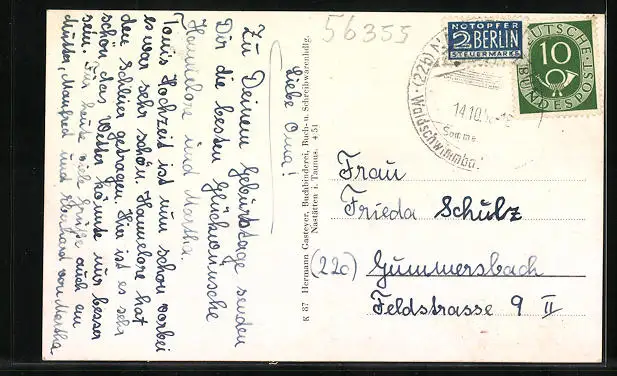 56355
Liebe Oma!
Zu Deinem Geburtstage senden
Dir die besten Glückwünsche
Hannelore und Martha.
Tonis Hochzeit ist nun schon vorbei
es war sehr schön. Hannelore hat
den Schleier getragen. Hier ist es sehr
schön, das Wetter könnte nur besser
sein. Für heute viele Grüße auch an
Mutter, Manfred und Eberhard von Martha
K 87 Hermann Casteyer, Buchbinderei, Buch- u. Schreibwarenhdlg.
Nastätten i. Taunus. 4 51
NOTOPFER
2 BERLIN
STEUERMARKE
DEUTSCHE
10
BUNDESPOST
(22b)
14.10.
Waldschwimmbad
Frau
Frieda Schulz
(22c) Gummersbach
Feldstrasse 9 II